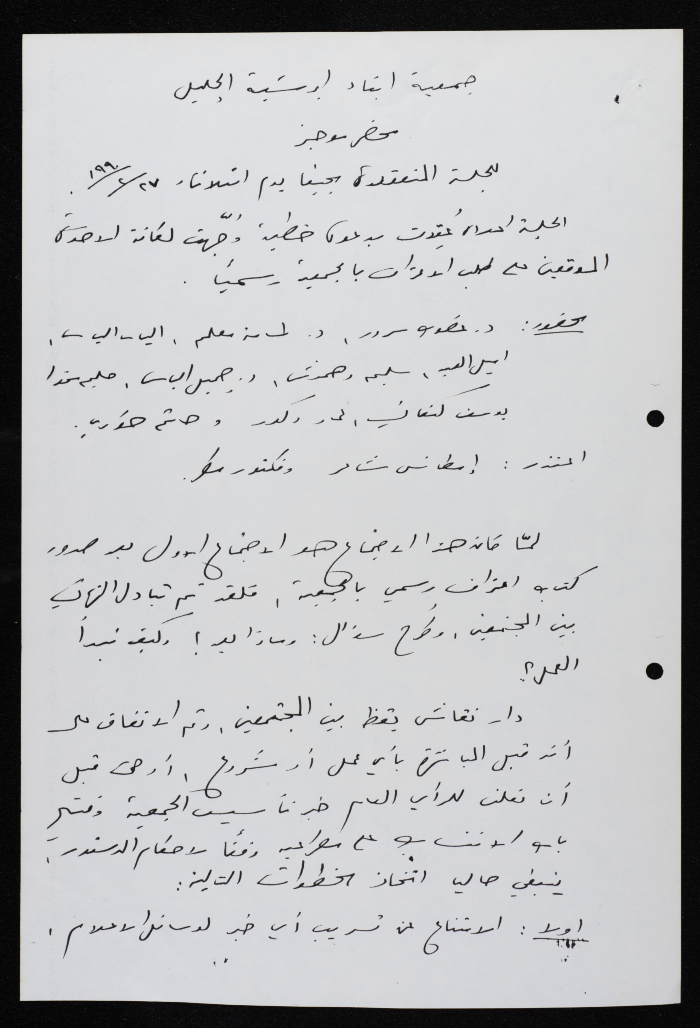 جمعية ابناء ابرشية الجليل
محضر موجز
للجلسة المنعقدة بحيفا يوم الثلاثاء ٢٧/٢/١٩٩٠.
الجلسة اعلاه عُقدت بدعوة خطية وُجّهت لكافة الاخوة
الموقعين على طلب الاعتراف بالجمعية رسميًا.
حضور: د. سرور، د. معلم، الياس الياس،
اميل العبد، سليم وهمزت، د. جميل الياس، حليم
يوسف كنعاني، و حاتم خوري.
اعتذر: إميل شاعر وفكتور مطر.
لمّا كان هذا الاجتماع هو الاجتماع الاول بعد صدور
كتاب اعتراف رسمي بالجمعية، فلقد تم تبادل التهاني
بين المجتمعين، وطُرح سؤال: وماذا بعد؟ وكيف نبدأ
العمل؟
دار نقاش يقظ بين المجتمعين، وتم الاتفاق على
أنه قبل المباشرة بأي عمل أو مشروع، أو حتى قبل
أن نعلن للرأي العام خبر تأسيس الجمعية وفتح
باب الانتساب على مصراعيه وفقًا لاحكام الدستور،
ينبغي حاليا اتخاذ الخطوات التالية:
اولا: الامتناع عن تسريب أي خبر لوسائل الاعلام.